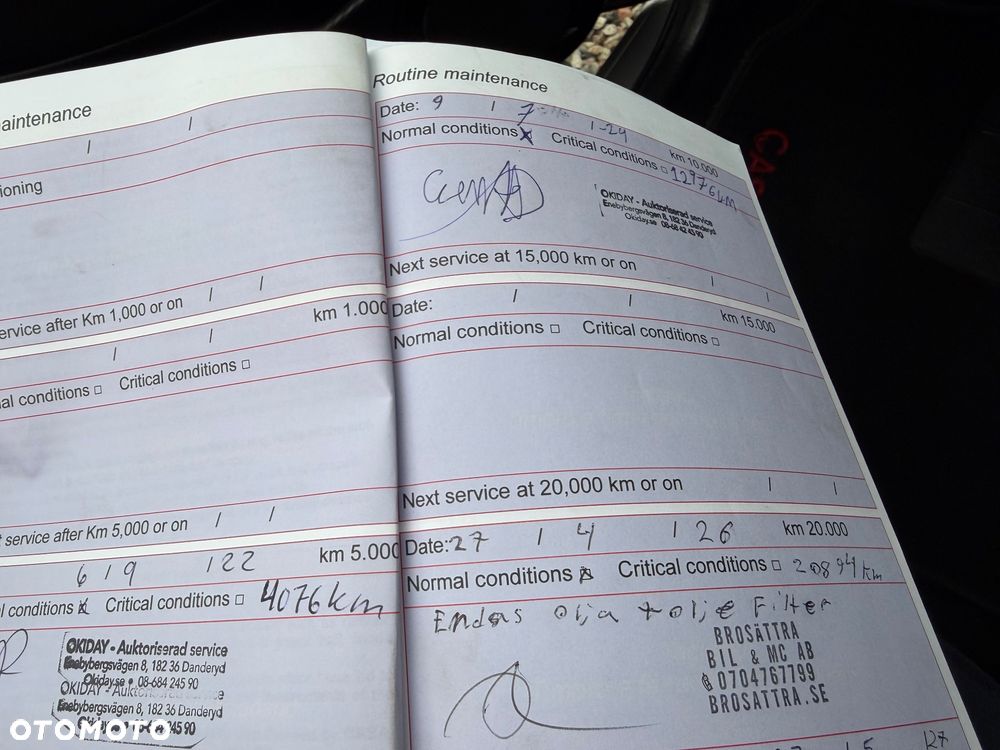 aintenance
/ /
ioning
ervice after Km 1,000 or on / /
km 1.000
/ /
al conditions □ Critical conditions □
service after Km 5,000 or on / /
km 5.000
6 / 9 / 22
l conditions ☒ Critical conditions □ 4076km
OKIDAY - Auktoriserad service
Enebybergsvägen 8, 182 36 Danderyd
Okiday.se • 08-684 245 90
OKIDAY - Auktoriserad service
Enebybergsvägen 8, 182 36 Danderyd
Okiday.se 08-684 245 90
OTOMOTO
Routine maintenance
Date: 9 / 7 / -24
km 10.000
Normal conditions ☒ Critical conditions □ 12976km
OKIDAY - Auktoriserad service
Enebybergsvägen 8, 182 36 Danderyd
Okiday.se 08-68 42 45 90
Next service at 15,000 km or on / /
Date: / / km 15.000
Normal conditions □ Critical conditions □
Next service at 20,000 km or on / /
Date: 27 / 4 / 26 km 20.000
Normal conditions ☒ Critical conditions □ 20894 km
Endas olja + olje Filter
BROSÄTTRA
BIL & MC AB
0704767799
BROSATTRA.SE